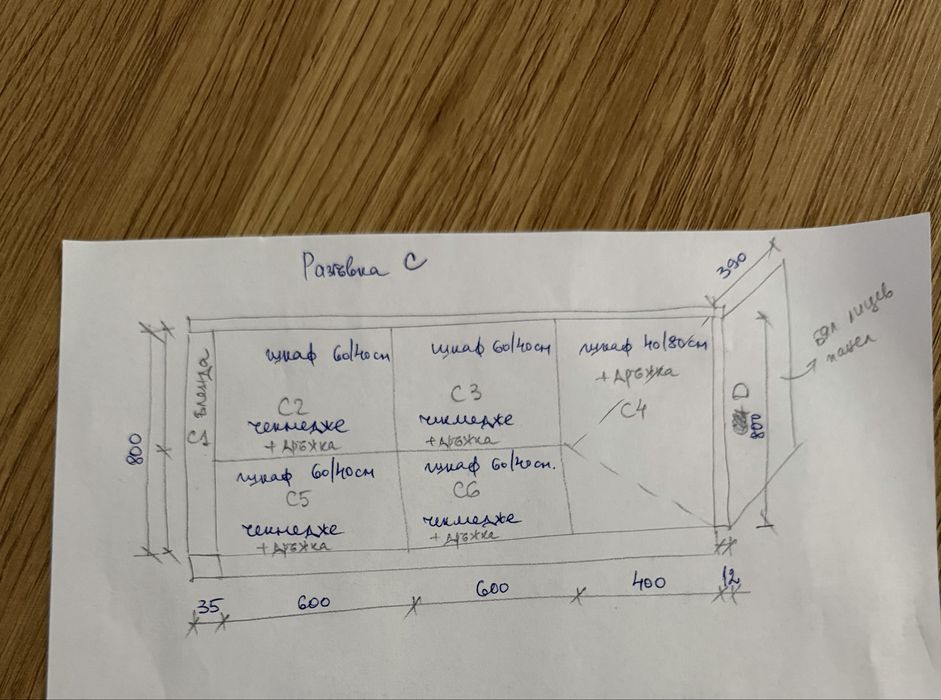 Разгъвка C
390
Бял лицев
панел
шкаф 60/40см
шкаф 60/40см
шкаф 40/80см
+ дръжка
C1 бленда
C2
чекмедже
+ дръжка
C3
чекмедже
+ дръжка
C4
D
800
800
шкаф 60/40см
C5
чекмедже
+ дръжка
шкаф 60/40см.
C6
чекмедже
+ дръжка
35
600
600
400
12